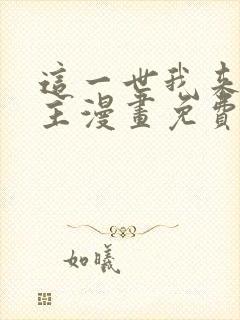 這一世我來
主漫畫免費
如曦